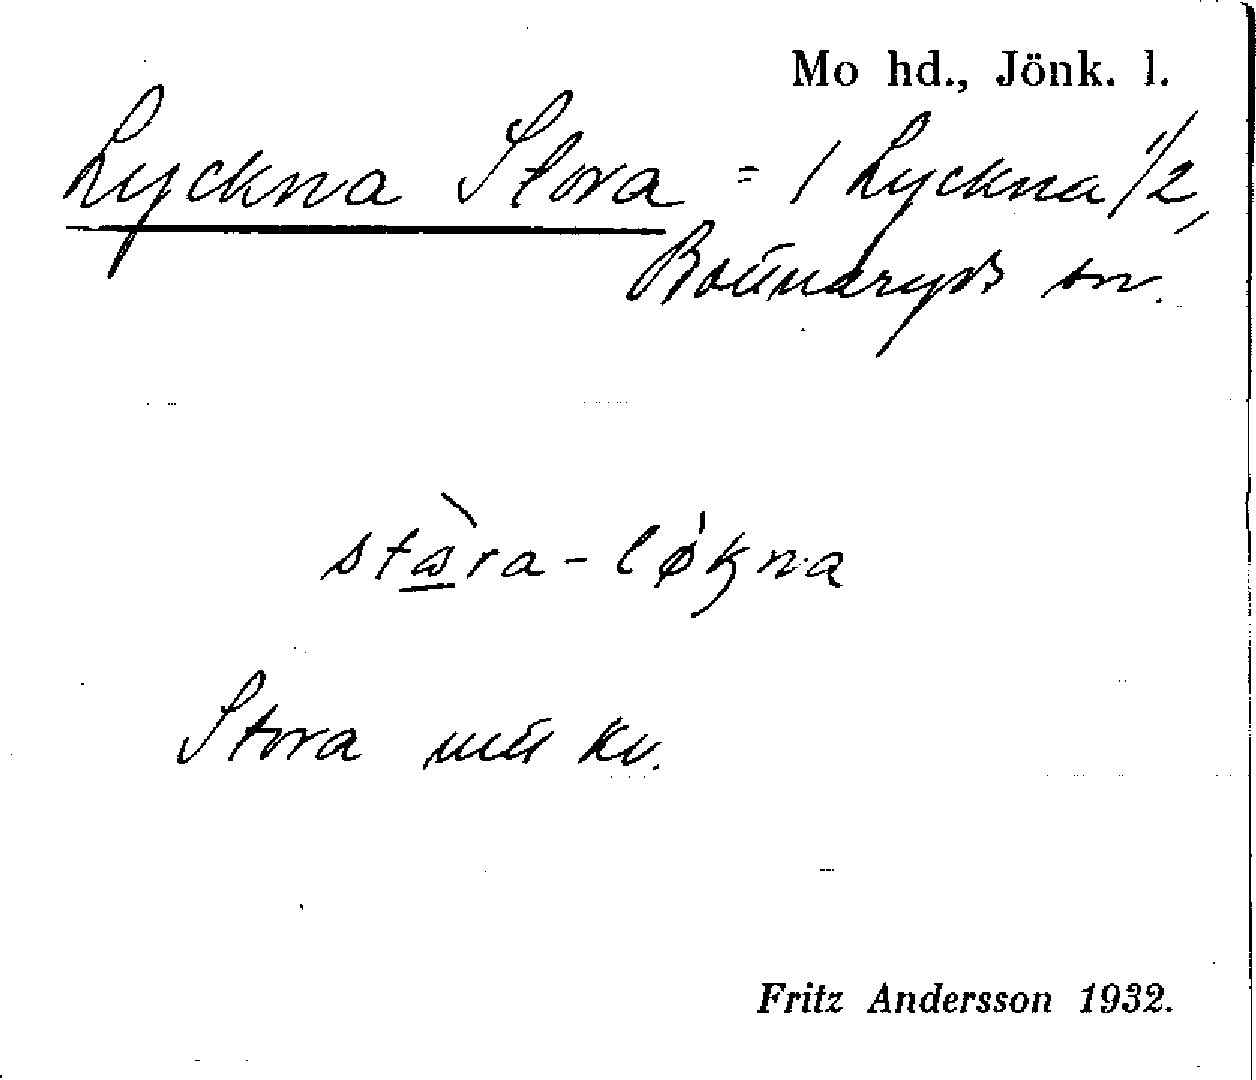 Mo hd., Jönk. l.
Lyckna Stora = 1 Lyckna 1/2,
Bottnaryds sn.
stⱥ̀ra-lǿkna
Stora kv.
Fritz Andersson 1932.